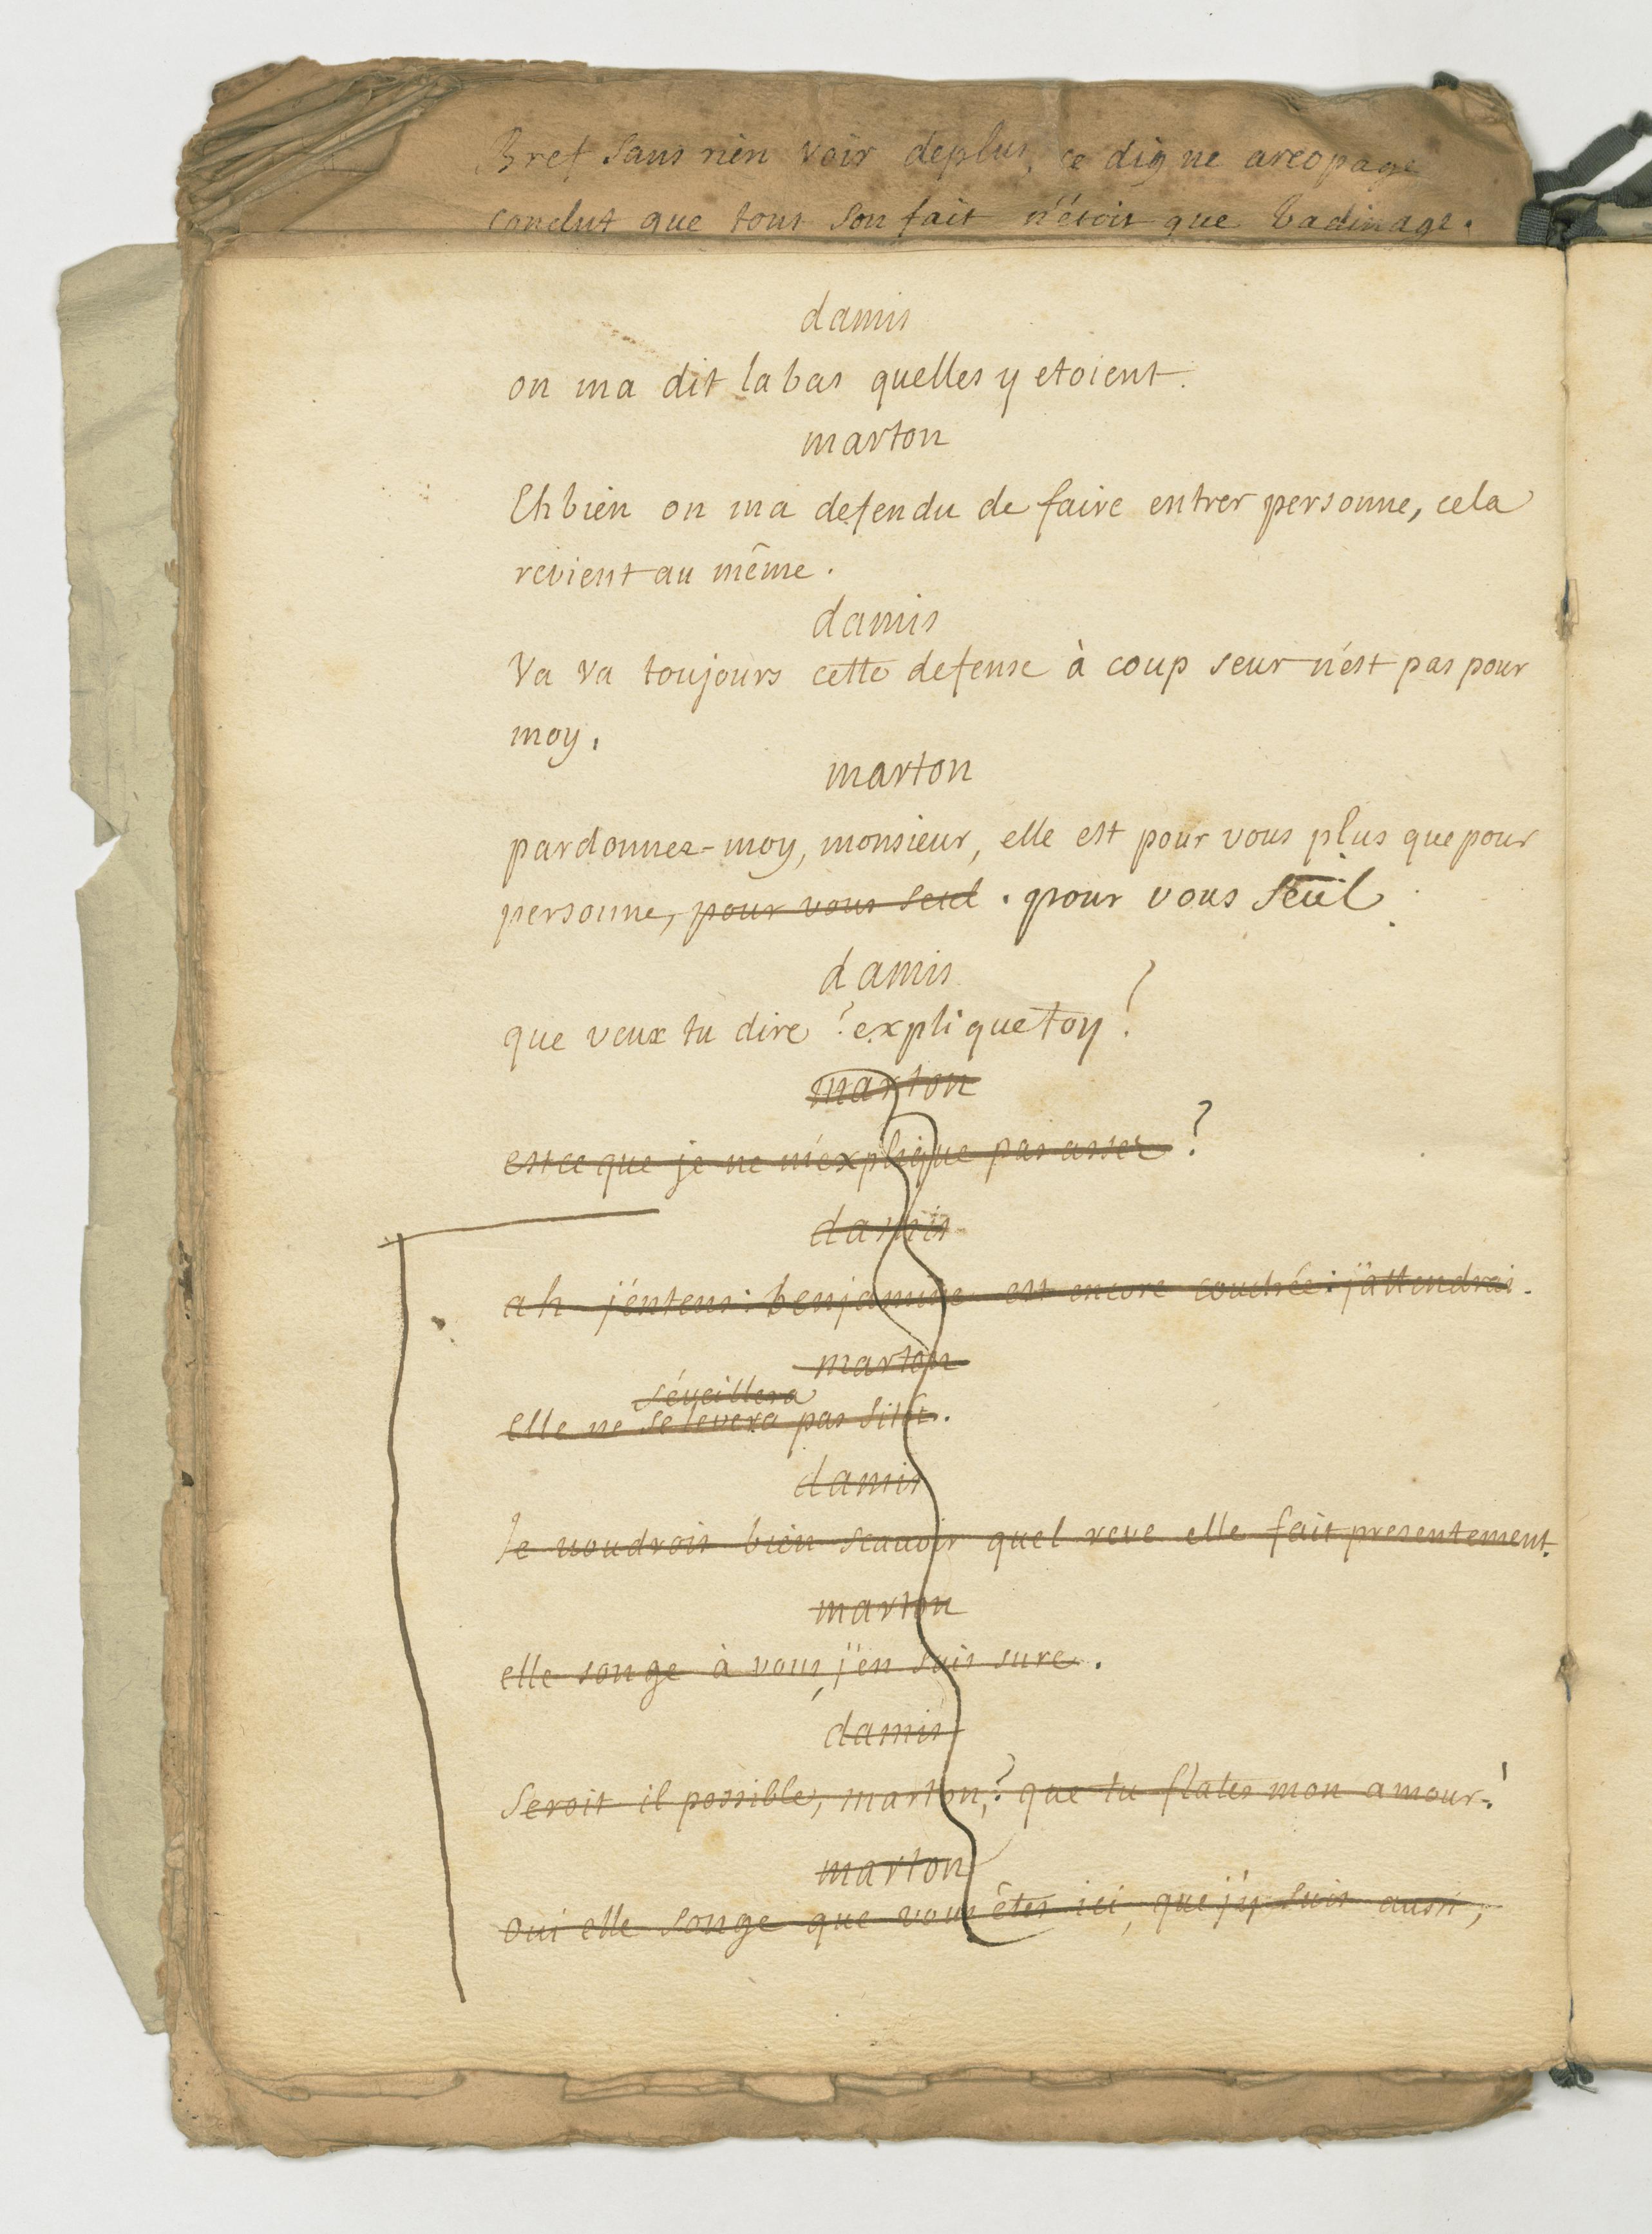 Bref Sans rien voir deplus, ce digne areopage
conclut que tout son fait n'étoit que badinage.
damis
on ma dit labas quelles y etoient.
marton
Eh bien on ma defendu de faire entrer personne, cela
revient au même.
damis
Va va toujours cette defense à coup seur n'est pas pour
moy.
marton
pardonnez-moy, monsieur, elle est pour vous plus que pour
personne, pour vous seul. pour vous seul.
damis
que veux tu dire? explique toy!
marton
est ce que je ne m'explique pas assez?
damis
ah j'entens: benjamine est encore couchée: j'attendrai.
marton
s'éveillera
elle ne se levera pas sitôt.
damis
Je voudrois bien scavoir quel reve elle fait presentement.
marton
elle songe à vous, j'en suis sure.
damis
Seroit il possible, marton,? que tu flates mon amour!
marton
Oui elle songe que vous êtes ici, que j'y suis aussi,